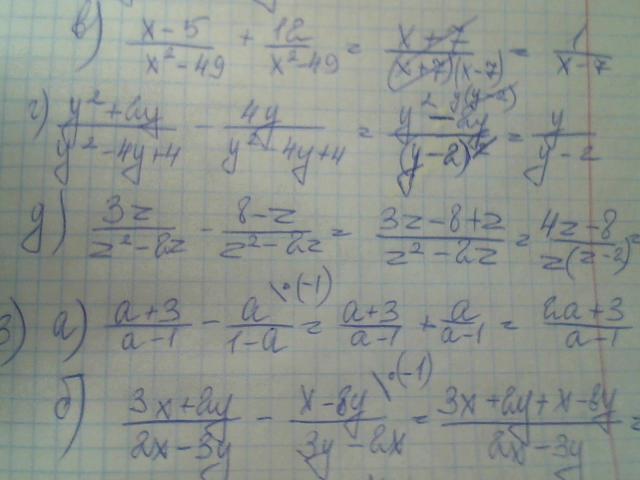 в) (x-5)/(x²-49) + 12/(x²-49) = (x+7)/((x+7)(x-7)) = 1/(x-7)
г) (y²+2y)/(y²-4y+4) - 4y/(y²-4y+4) = (y²-2y)/(y-2)² = y/(y-2)
y(y-2)
д) 3z/(z²-2z) - (8-z)/(z²-2z) = (3z-8+z)/(z²-2z) = (4z-8)/(z(z-2)) =
3) а) (a+3)/(a-1) - a/(1-a) \·(-1) = (a+3)/(a-1) + a/(a-1) = (2a+3)/(a-1)
б) (3x+2y)/(2x-3y) - (x-8y)/(3y-2x) \·(-1) = (3x+2y+x-8y)/(2x-3y) =